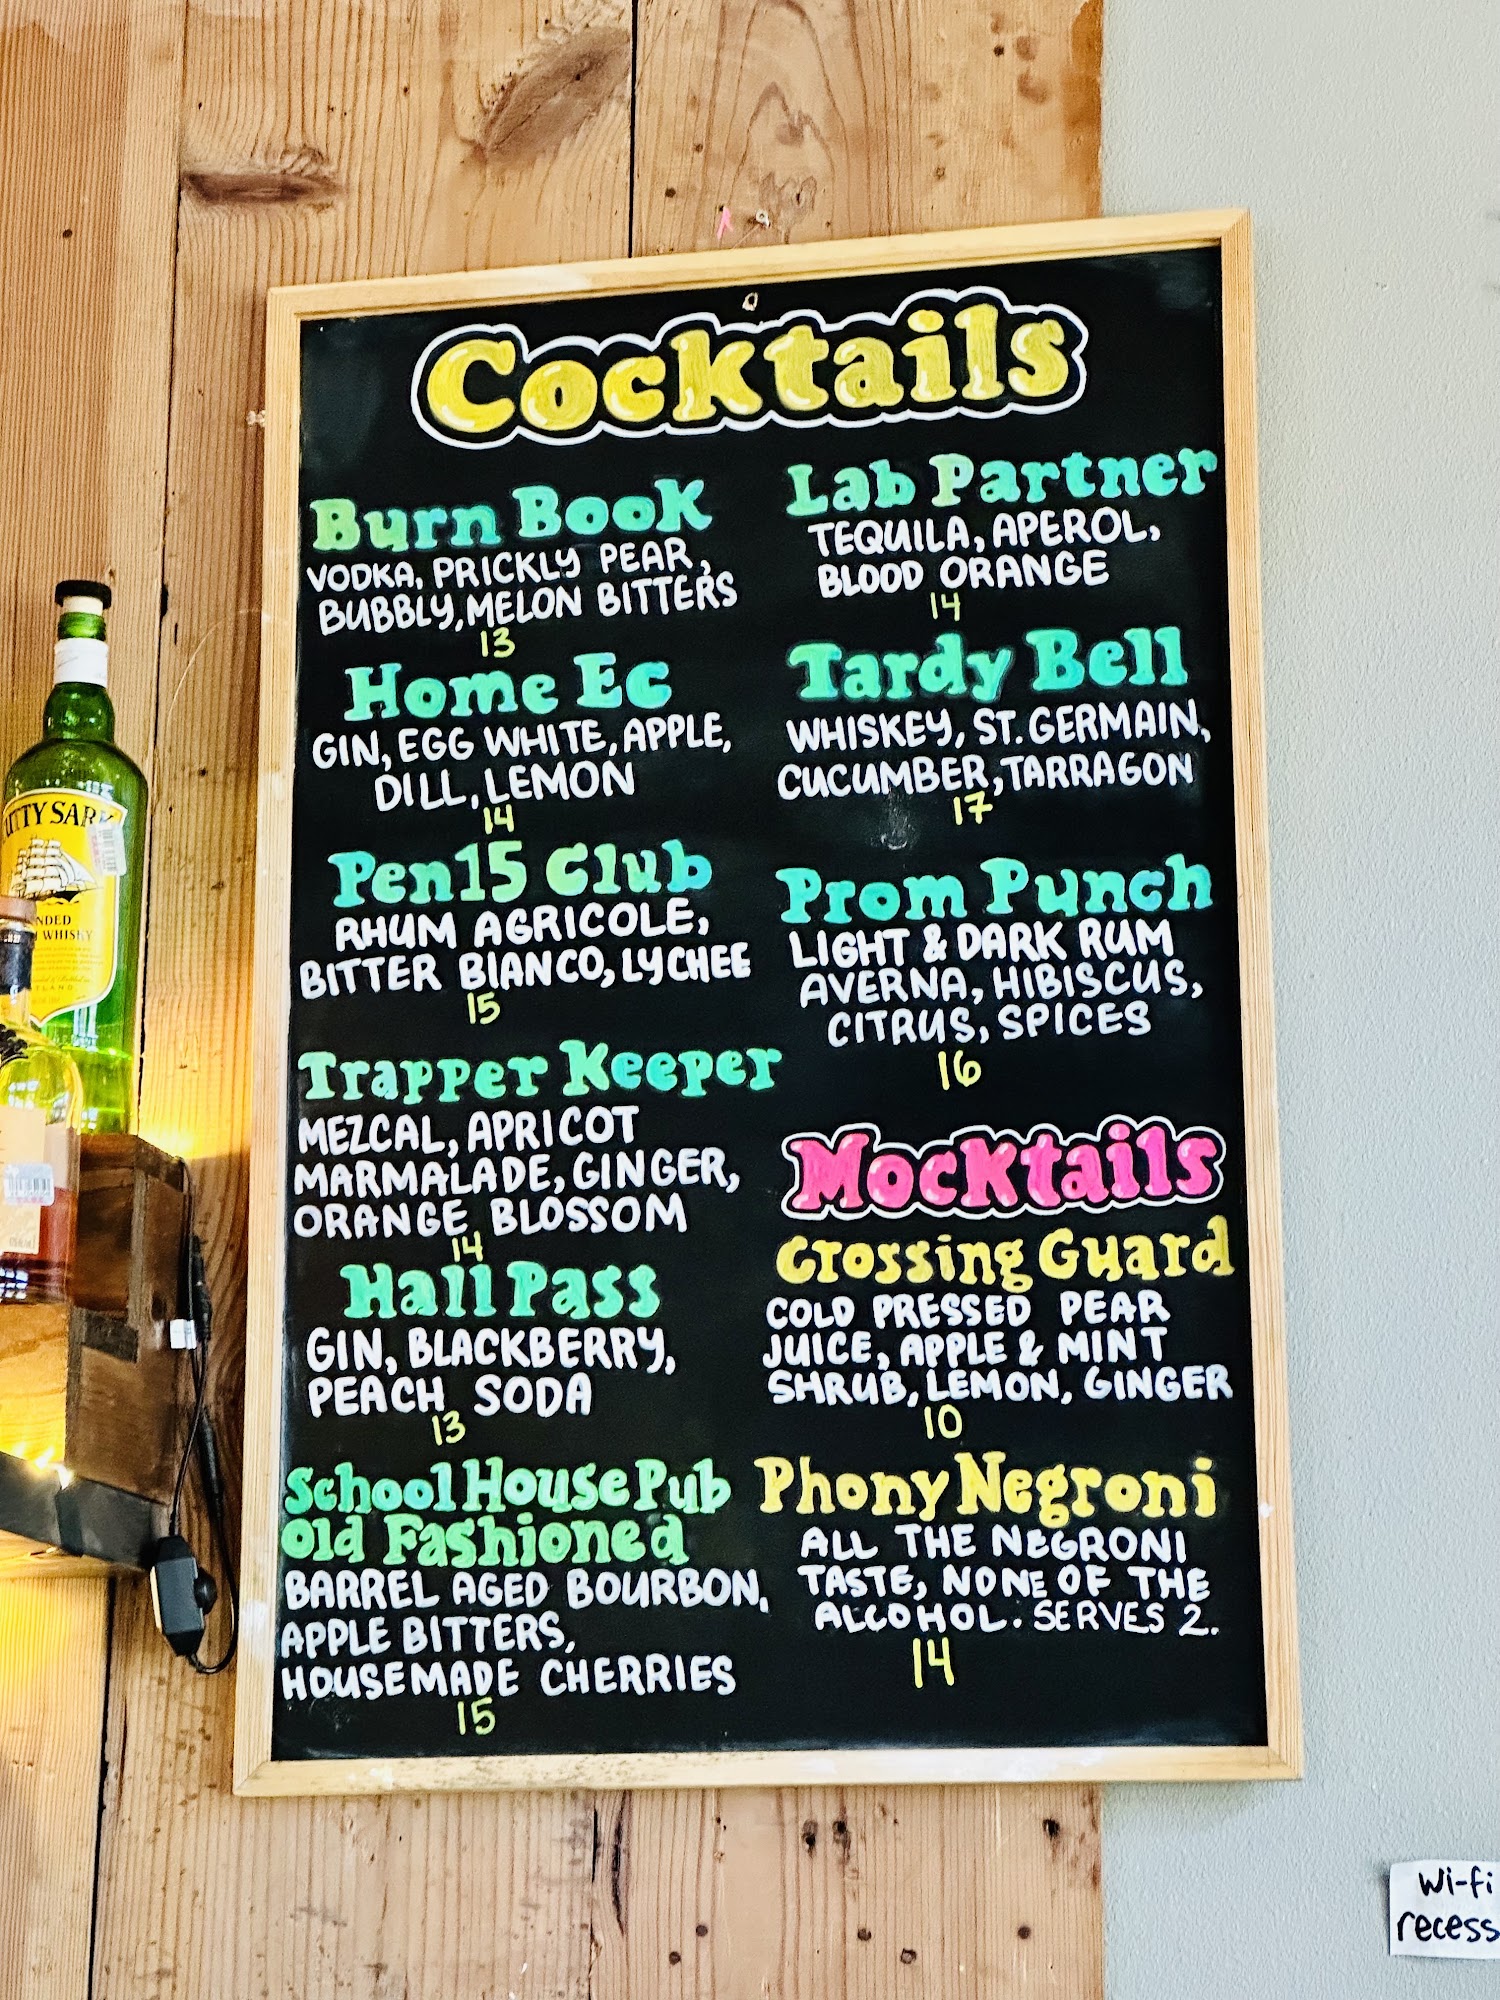 Cocktails
Burn Book
VODKA, PRICKLY PEAR,
BUBBLY, MELON BITTERS
13
Home Ec
GIN, EGG WHITE, APPLE,
DILL, LEMON
14
Pen15 Club
RHUM AGRICOLE,
BITTER BIANCO, LYCHEE
15
Trapper Keeper
MEZCAL, APRICOT
MARMALADE, GINGER,
ORANGE BLOSSOM
14
Hall Pass
GIN, BLACKBERRY,
PEACH SODA
13
School House Pub
Old Fashioned
BARREL AGED BOURBON,
APPLE BITTERS,
HOUSEMADE CHERRIES
15
Lab Partner
TEQUILA, APEROL,
BLOOD ORANGE
14
Tardy Bell
WHISKEY, ST. GERMAIN,
CUCUMBER, TARRAGON
17
Prom Punch
LIGHT & DARK RUM
AVERNA, HIBISCUS,
CITRUS, SPICES
16
Mocktails
Crossing Guard
COLD PRESSED PEAR
JUICE, APPLE & MINT
SHRUB, LEMON, GINGER
10
Phony Negroni
ALL THE NEGRONI
TASTE, NONE OF THE
ALCOHOL. SERVES 2.
14
UTTY SARK
NDED
WHISKY
Wi-fi
recess